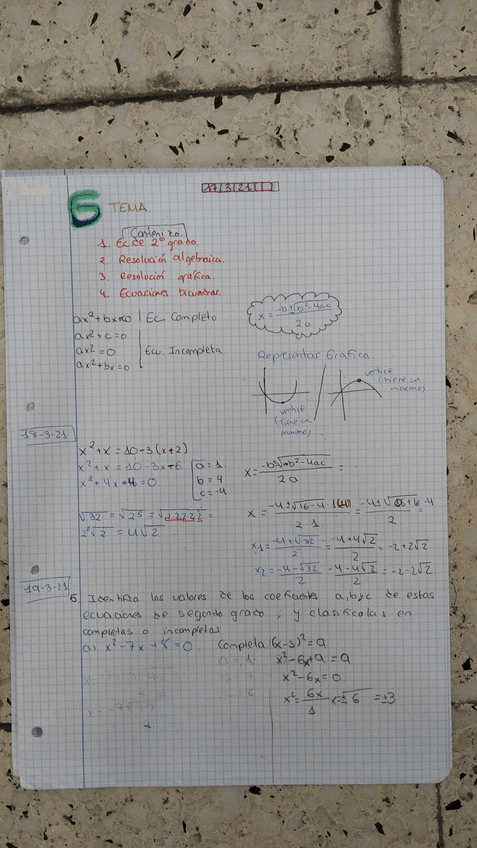 17/3/21
6 TEMA.
Contenido.
1. Ec de 2º grado.
2. Resolución algebraica.
3. Resolución gráfica.
4. Ecuaciones bicuadras.
ax²+bx=0 | Ec Completo
ax²+c=0
ax²=0 | Ecu. Incompleta.
ax²+bx=0
x = -b±√b²-4ac / 2a
Representar Grafica
vertice (tiene un maximo)
vertice (tiene un minimo)
18-3-21
x²+x=10-3(x+2)
x²+x=10-3x-6
x²+4x-4=0
a=1
b=4
c=-4
√32=√2⁵=√22222=
2²√2=4√2
x= -b±√b²-4ac / 2a =
x= -4±√16-4·1(-4) / 2·1 = -4±√16+16 / 2
x1= -4+√32 / 2 = -4+4√2 / 2 = -2+2√2
x2= -4-√32 / 2 = -4-4√2 / 2 = -2-2√2
19-3-21
6 Identifica los valores de los coeficientes a,b,c de estas
ecuaciones de segundo grado, y clasificalas en
completas o incompletas
a) x²-7x+8=0 Completa
(x-3)²=9
x²-6x+9=9
x²-6x=0
x²= 6x / 1 x=±√6 =±3